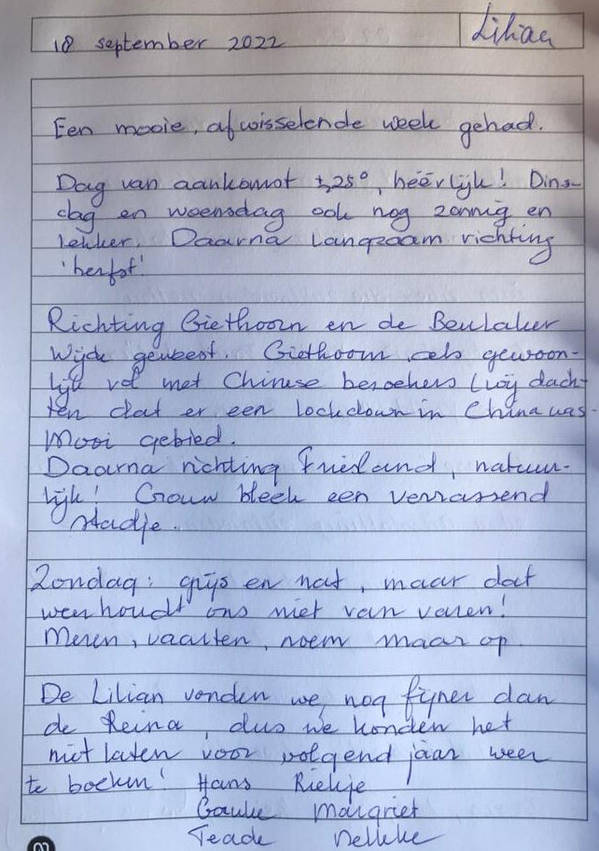 18 september 2022
Lilian
Een mooie, afwisselende week gehad.
Dag van aankomst ±25°, héérlijk! Dins-
dag en woensdag ook nog zonnig en
lekker. Daarna langzaam richting
'herfst'
Richting Giethoorn en de Beulaker
Wijde geweest. Giethoorn als gewoon-
lijk vol met Chinese bezoekers (wij dach-
ten dat er een lockdown in China was.
Mooi gebied.
Daarna richting Friesland, natuur-
lijk! Grouw bleek een verrassend
stadje.
Zondag: grijs en nat, maar dat
weerhoudt ons niet van varen!
Meren, vaarten, noem maar op.
De Lilian vonden we nog fijner dan
de Reina, dus we konden het
niet laten voor volgend jaar weer
te boeken! Hans Riekje
Gauke Margriet
Teade Nelleke